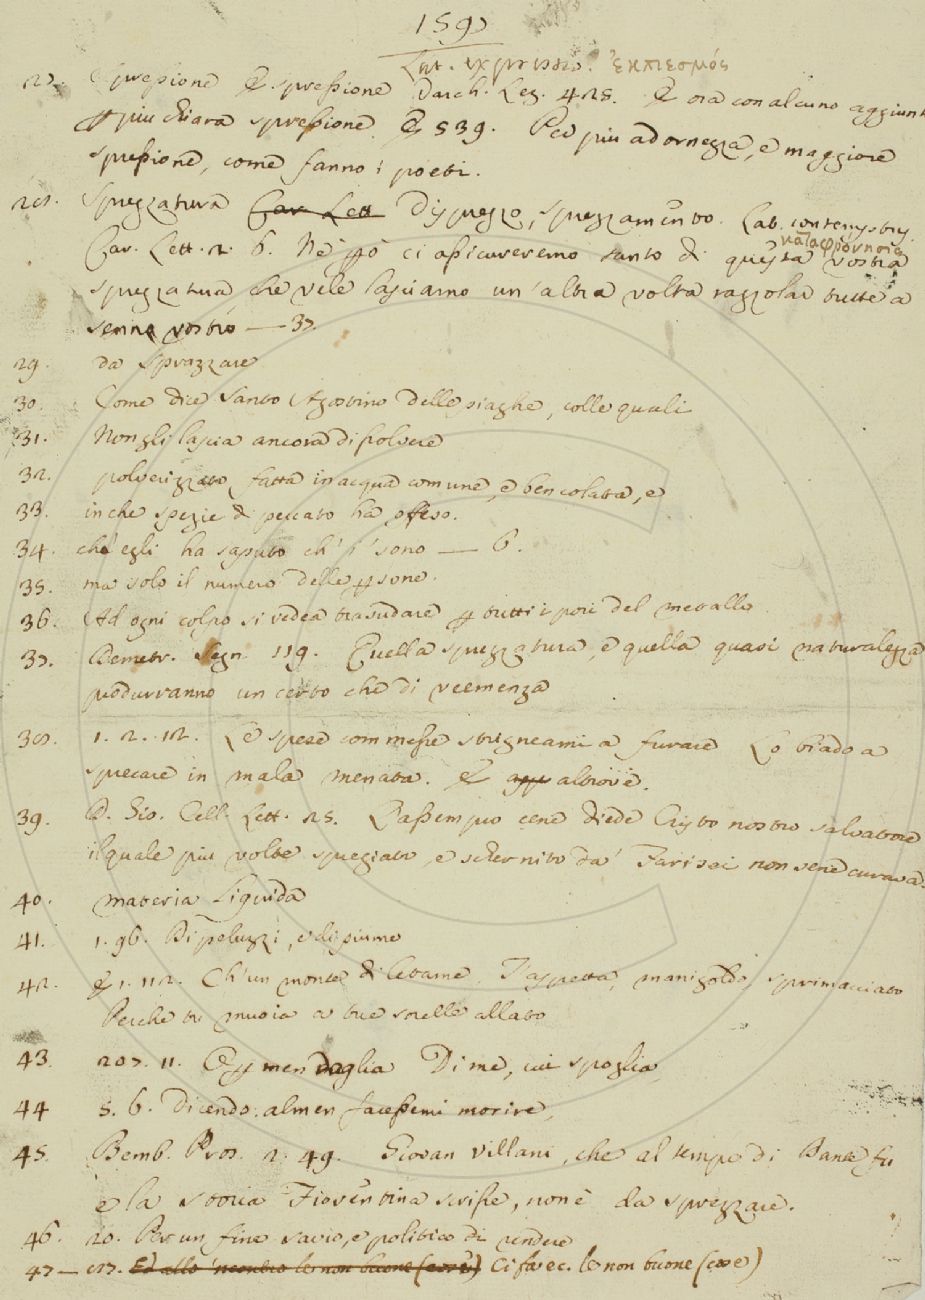 159
Lat. expressio. ἐκπιεσμός
27. Espressione E spressione Varch. Lez. 425. E ora con alcuno aggiunt
più chiara spressione. E 539. Per più adornezza, e maggiore
spressione, come fanno i poeti.
28. Sprezzatura Car. Lett. Dispregio, sprezzamento. Lat. contemptus.
καταφρόνησις
Car. Lett. 2. 6. Nè però ci assicureremo tanto di questa vostra
sprezzatura, che ve le lasciamo un'altra volta razzolar tutte a
senno vostro — 37
29. da Sprazzare
30. Come dice Santo Agostino delle piaghe, colle quali
31. Non gli lascia ancora dissolvere
32. polverizzato fatta in acqua comune, e ben colata, e
33. in che spezie di peccato ha offeso.
34. ch' egli ha saputo ch' i' sono — 6.
35. ma solo il numero delle persone.
36. Ad ogni colpo si vedea trasudare per tutti i pori del metallo
37. Demetr. Segn. 119. Quella sprezzatura, e quella quasi naturalezza
produrranno un certo che di veemenza
38. 1. 2. 12. Le spese commesse strigneami a furare Lo biado a
sprecare in mala menata. E app altrove.
39. D. Gio. Cell. Lett. 25. Bassempro cene diede Cristo nostro salvatore
il quale più volte spregiato, e schernito da' Farisei non sene curava.
40. materia liquida
41. 1. 96. Di peluzzi, e di piume
42. E 1. 112. Ch'un monte di letame, T'aspetta, manigoldo, sprimacciato
Perchè tu muoia a tue sorelle allato
43. 207. 11. O per men doglia Di me, cui spoglia,
44 5. 6. Dicendo: almen facessemi morire,
45. Bemb. Pros. 2. 49. Giovan Villani, che al tempo di Dante fu
e la storia Fiorentina scrisse, non è da sprezzare.
46. 20. Per un fine savio, e politico di rendere
47 — 127. Ed allo 'ncontro le non buone (cose) Ci fa ec. le non buone (cose)